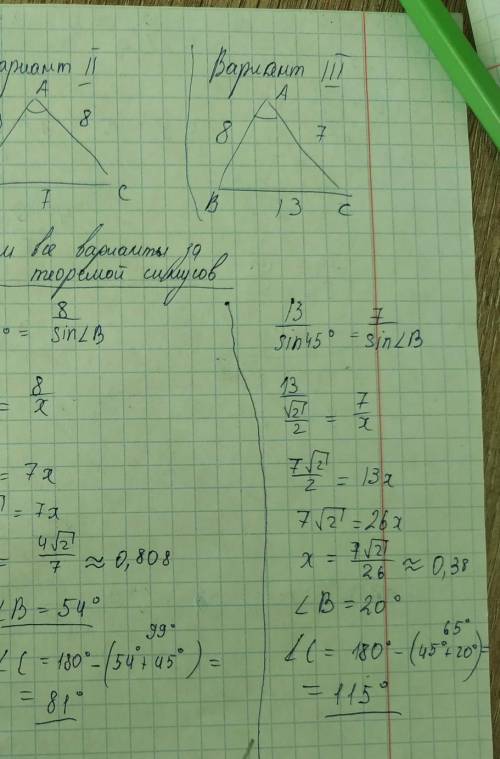 ариант II
Вариант III
A
8
7
C
A
8
7
B
13
C
все варианты за
теоремой синусов
° = 8/sin∠B
= 8/x
= 7x
= 7x
= 4√2/7 ≈ 0,808
∠B = 54°
99°
∠C = 180° - (54° + 45°) =
= 81°
13/sin45° = 7/sin∠B
13/(√2/2) = 7/x
7√2/2 = 13x
7√2 = 26x
x = 7√2/26 ≈ 0,38
∠B = 20°
65°
∠C = 180° - (45° + 20°) =
= 115°